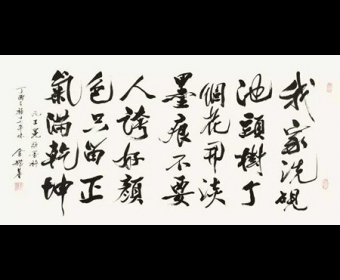 我家洗硯
池頭樹个
個花開淡
墨痕不要
人誇好顏
色只留正
氣滿乾坤
元王冕